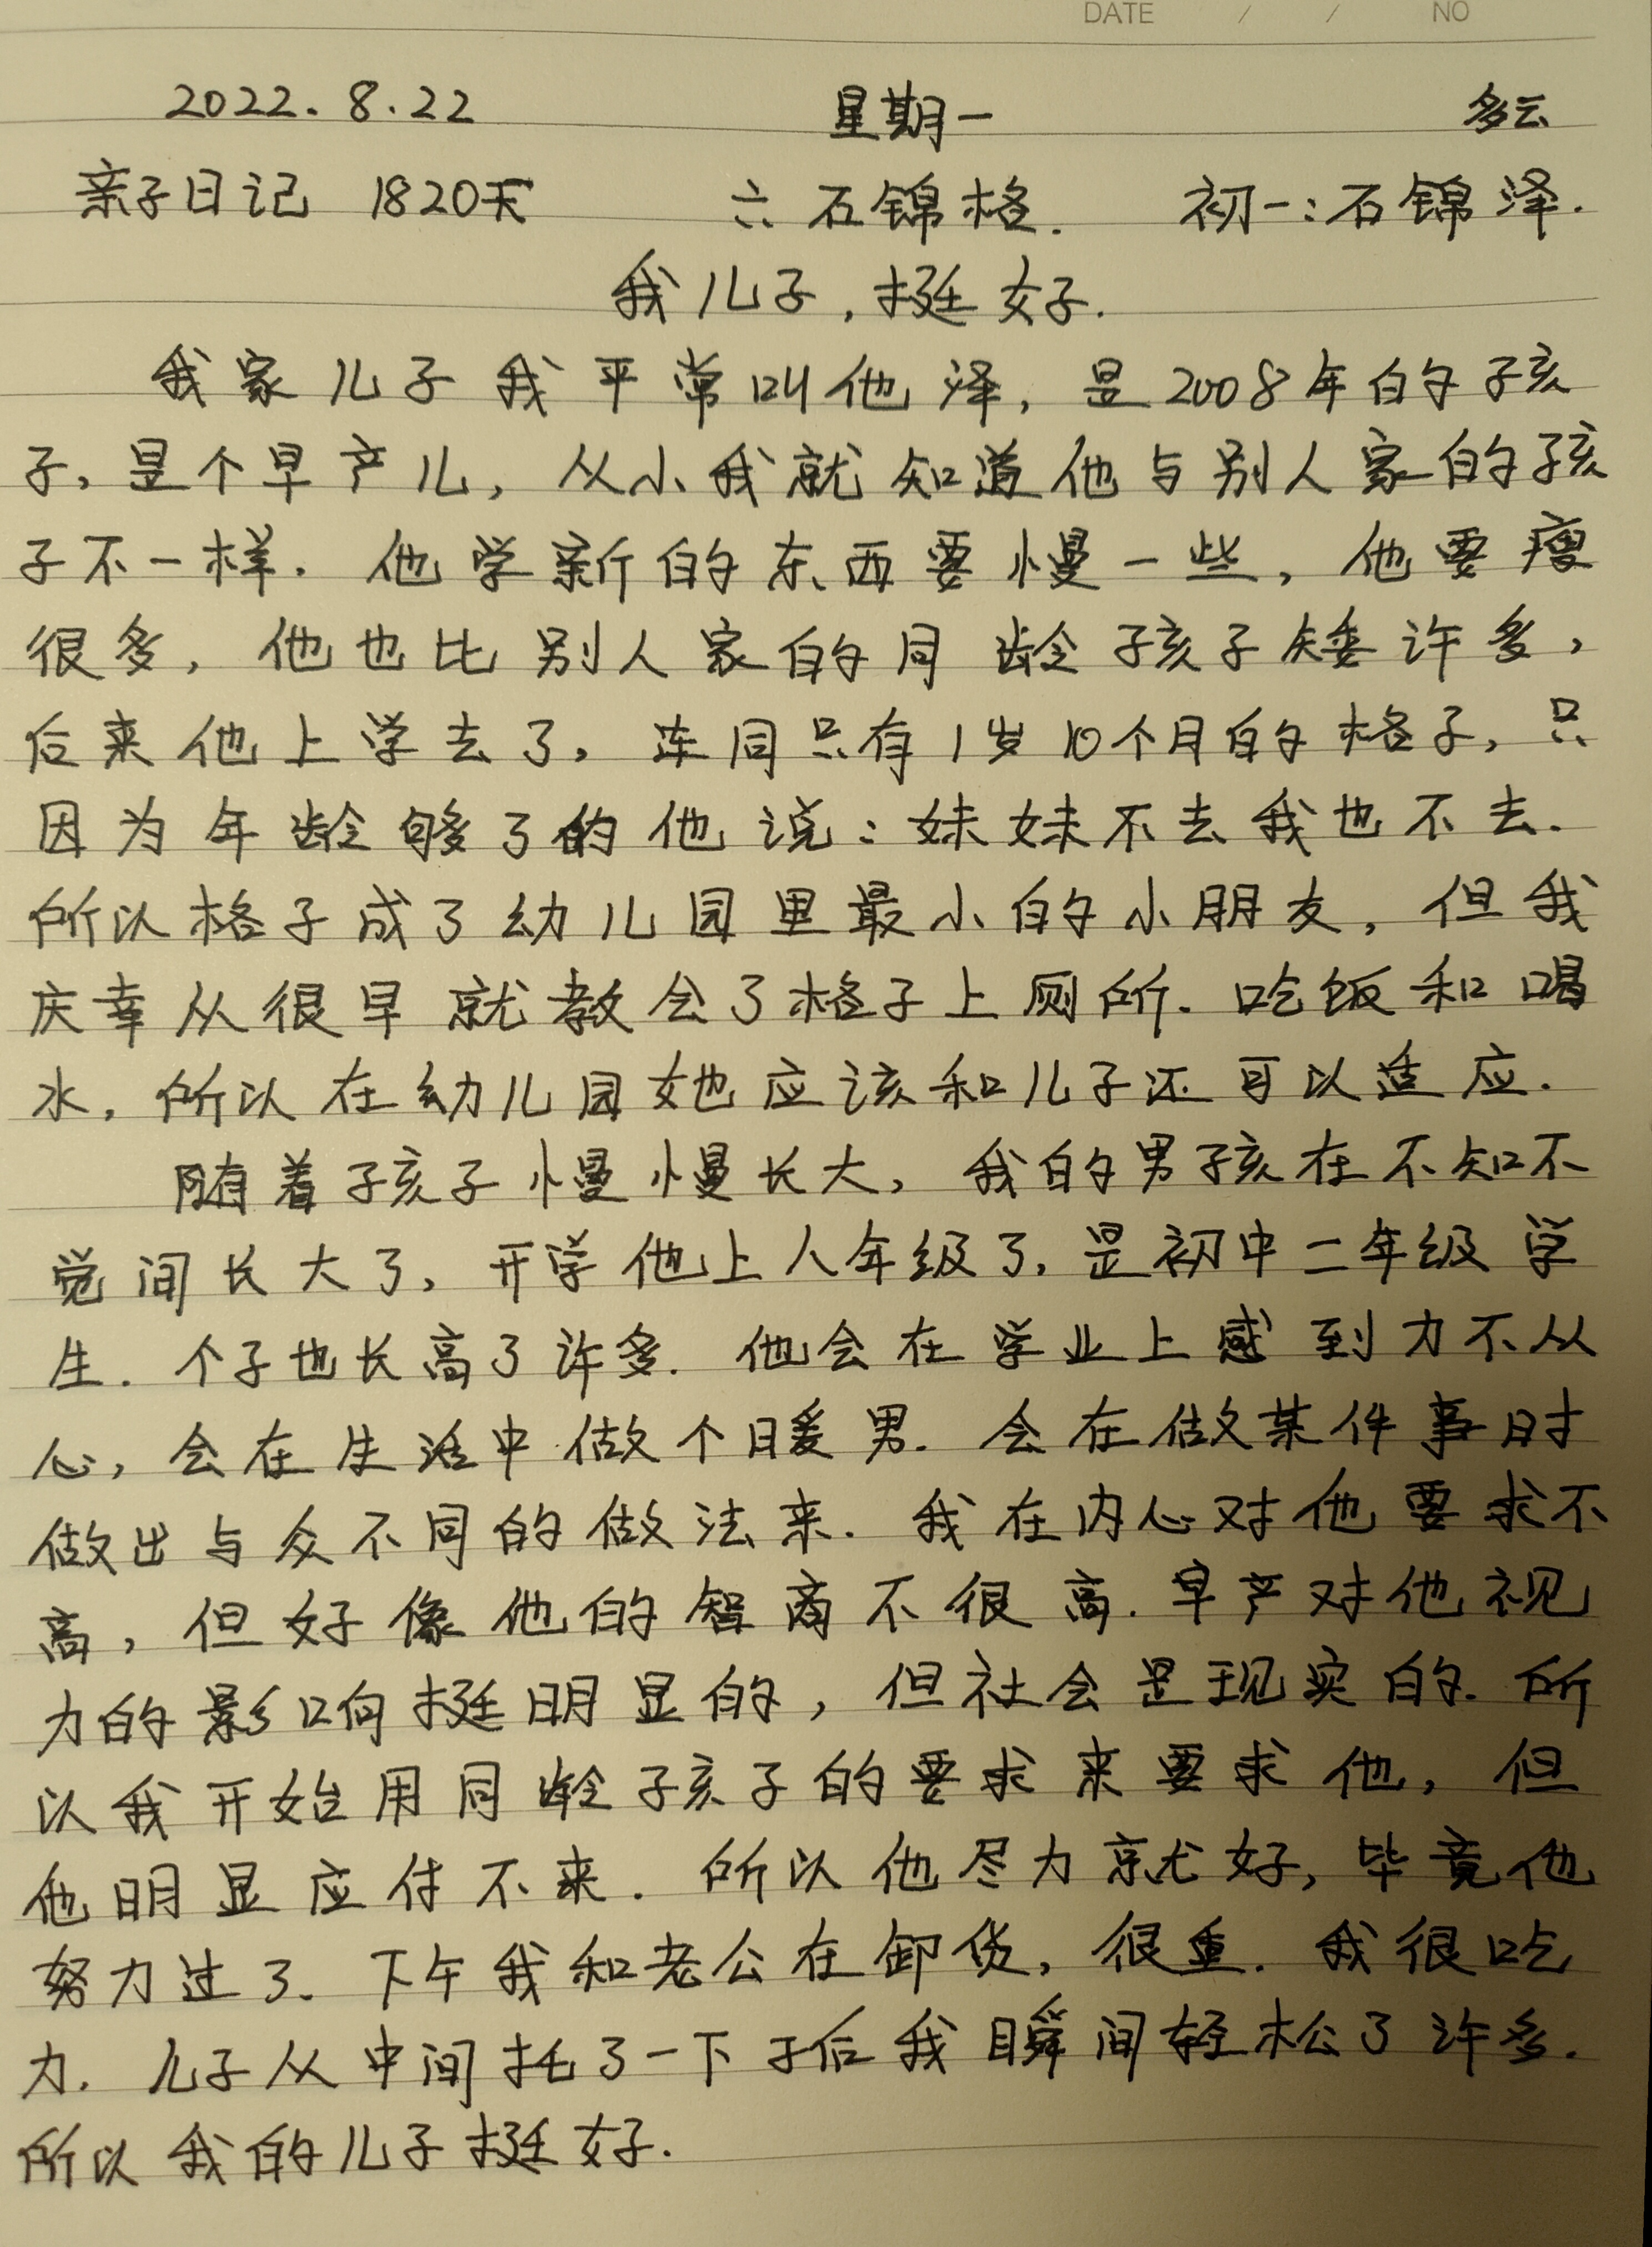 DATE / / NO
2022.8.22 星期一 多云
亲子日记 1820天 六 石锦格. 初一:石锦泽.
我儿子,挺好.
我家儿子我平常叫他泽,是2008年的孩
子,是个早产儿,从小我就知道他与别人家的孩
子不一样.他学新的东西要慢一些,他要瘦
很多,他也比别人家的同龄孩子矮许多,
后来他上学去了,连同只有1岁10个月的格子,只
因为年龄够了的他说:妹妹不去我也不去.
所以格子成了幼儿园里最小的小朋友,但我
庆幸从很早就教会了格子上厕所.吃饭和喝
水,所以在幼儿园她应该和儿子还可以适应.
随着孩子慢慢长大,我的男孩在不知不
觉间长大了,开学他上八年级了,是初中二年级学
生.个子也长高了许多.他会在学业上感到力不从
心,会在生活中做个暖男.会在做某件事时
做出与众不同的做法来.我在内心对他要求不
高,但好像他的智商不很高.早产对他视
力的影响挺明显的,但社会是现实的.所
以我开始用同龄孩子的要求来要求他,但
他明显应付不来.所以他尽力就好,毕竟他
努力过了.下午我和老公在卸货,很重.我很吃
力.儿子从中间托了一下于后我瞬间轻松了许多.
所以我的儿子挺好.